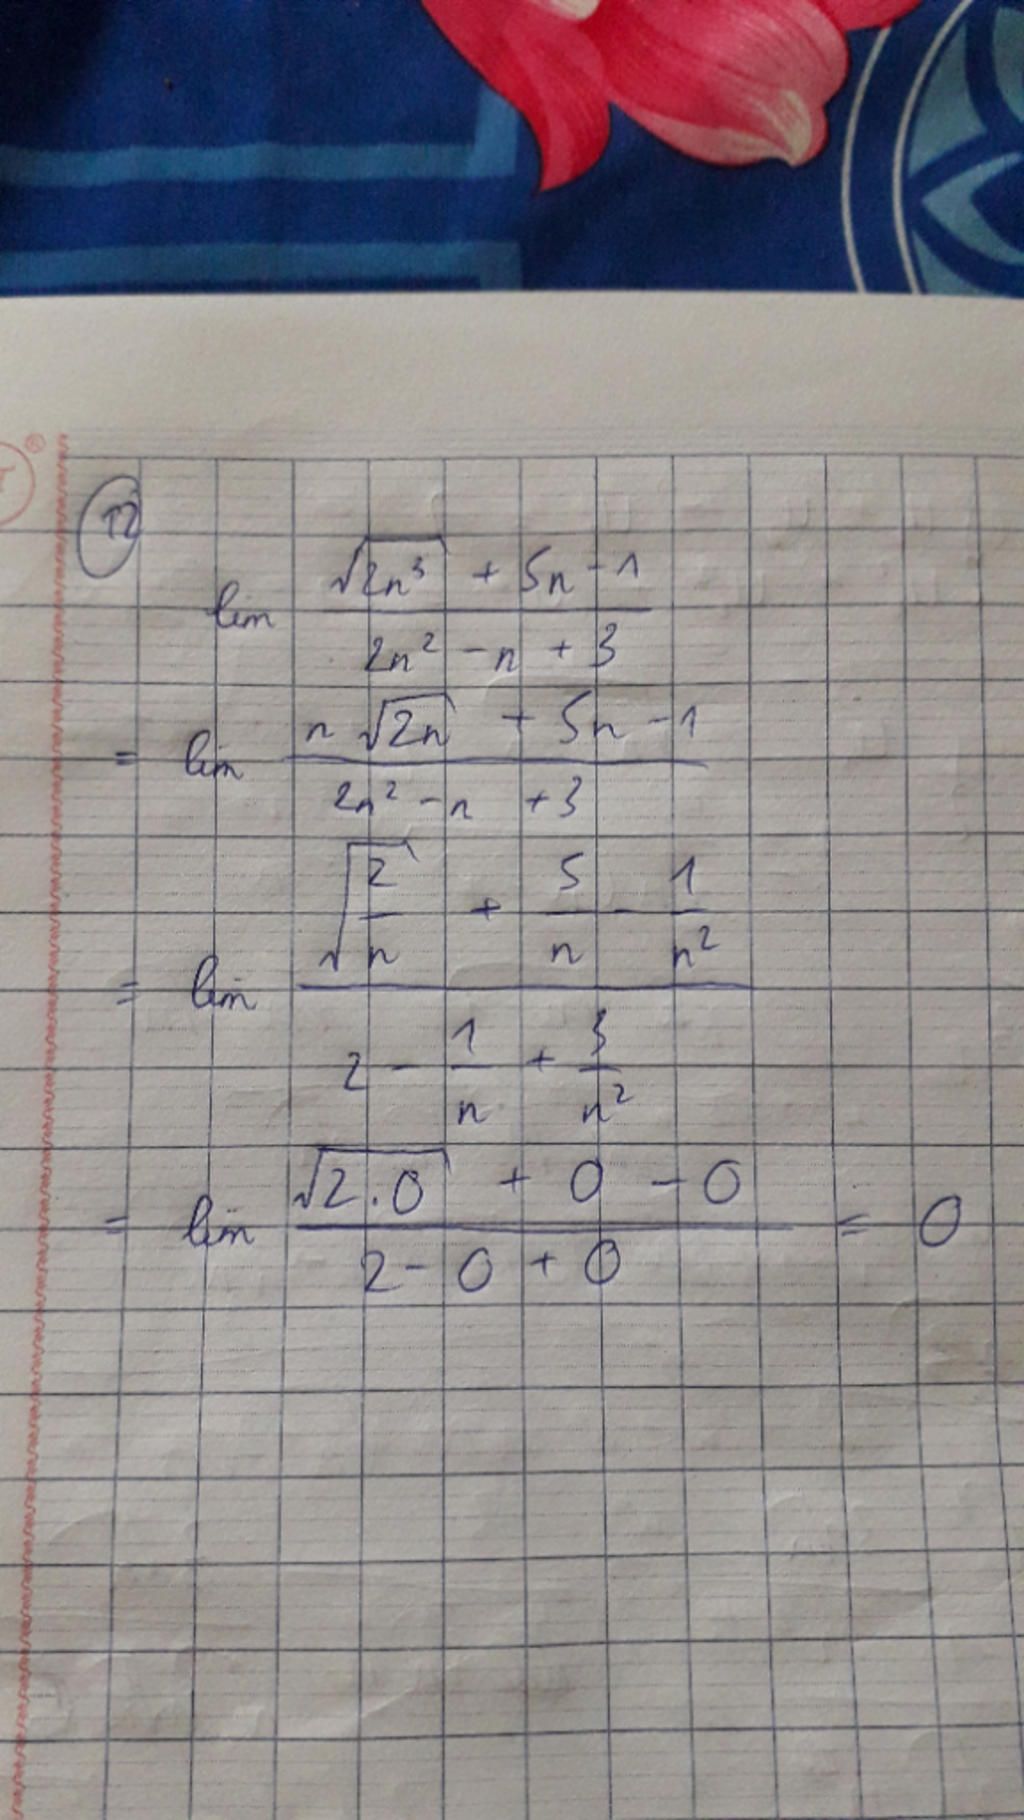 12
lim (√(2n³) + 5n - 1) / (2n² - n + 3)
= lim (n √(2n) + 5n - 1) / (2n² - n + 3)
= lim (√(2/n) + 5/n - 1/n²) / (2 - 1/n + 3/n²)
= lim (√(2.0) + 0 - 0) / (2 - 0 + 0) = 0